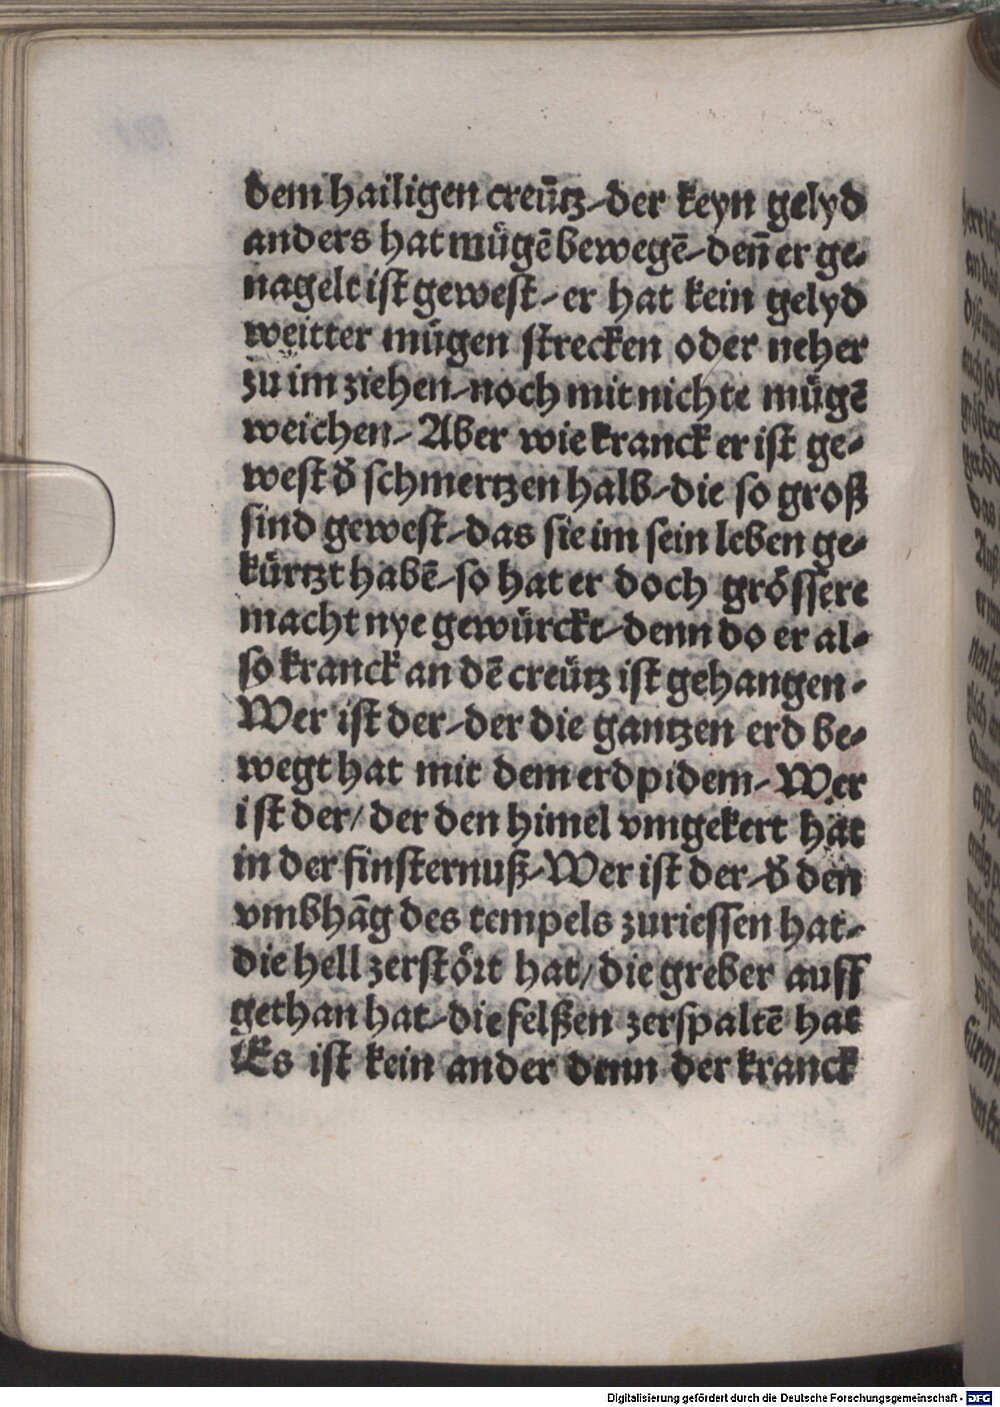 dem hailigen creütz-der keyn gelyd
anders hat mügē bewegē-deñ er ge-
nagelt ist gewest-er hat kein gelyd
weitter mügen strecken oder neher
zu im ziehen-noch mit nichte mügē
weichen-Aber wie kranck er ist ge-
west d̄ schmertzen halb-die so groß
sind gewest-das sie im sein leben ge-
kürtzt habē-so hat er doch grössere
macht nye gewürckt-denn do er al-
so kranck an dē creütz ist gehangen-
Wer ist der-der die gantzen erd be-
wegt hat mit dem erdpidem-Wer
ist der/ der den himel vmgekert hat
in der finsternuß-Wer ist der-d̄ den
vmbhāg des tempels zuriessen hat-
die hell zerstört hat/ die greber auff
gethan hat-die felßen zerspaltē hat
Es ist kein ander denn der kranck
Digitalisierung gefördert durch die Deutsche Forschungsgemeinschaft - DFG